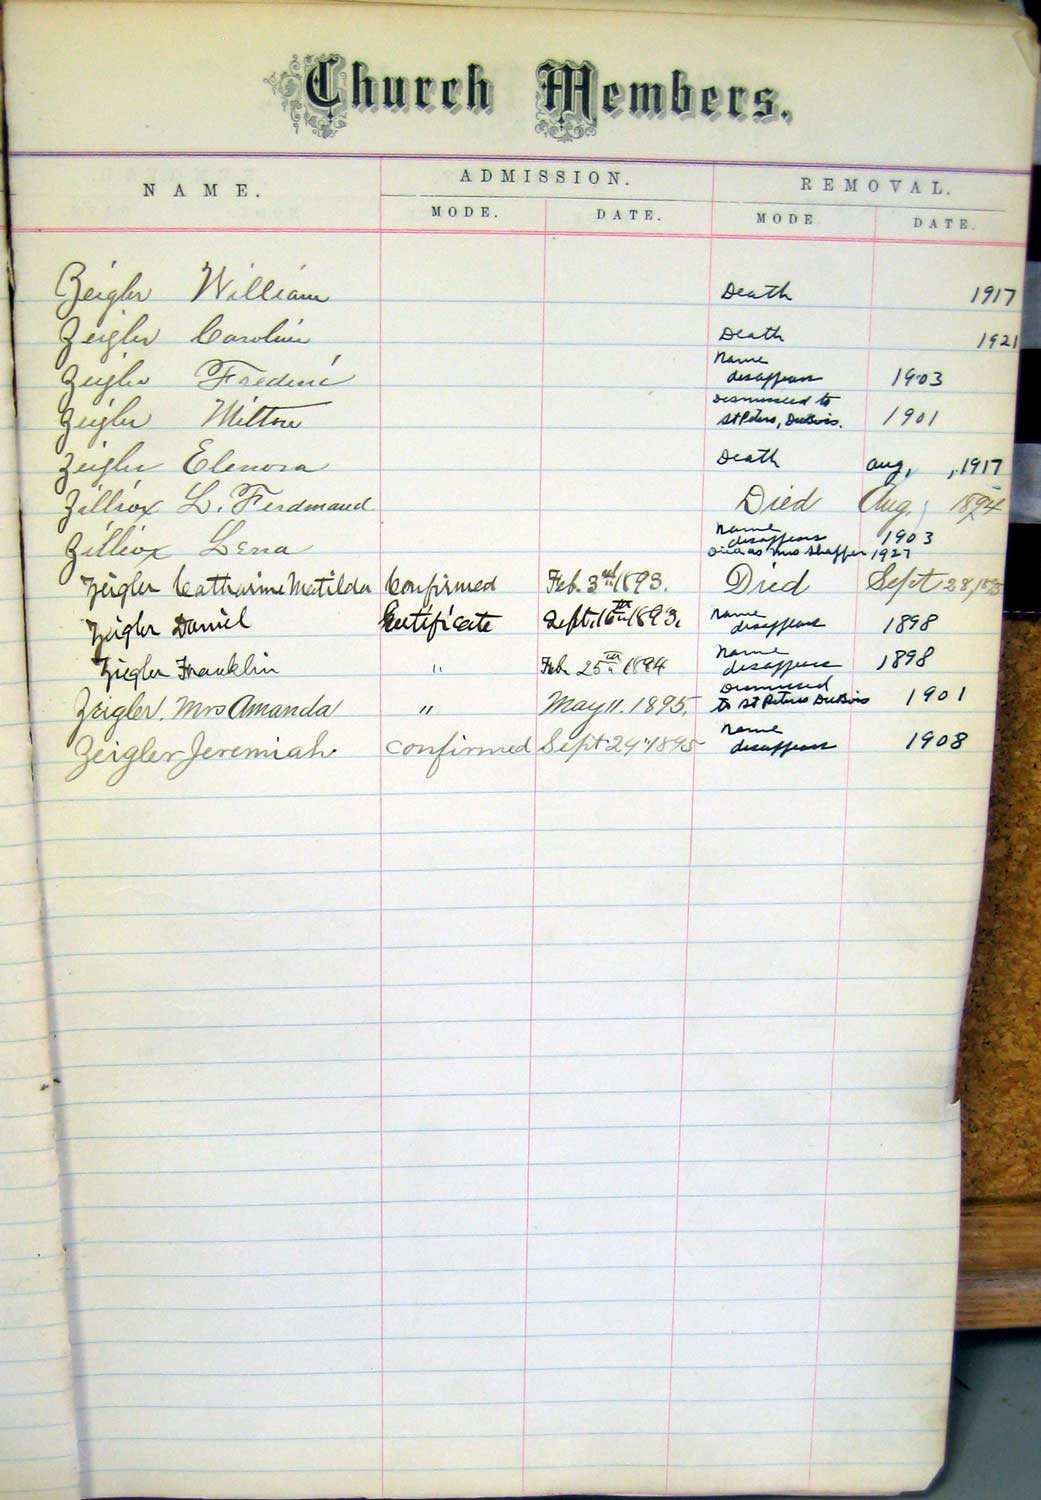 Church Members.
NAME. ADMISSION. REMOVAL.
MODE. DATE. MODE DATE.
Zeigler William Death 1917
Zeigler Caroline Death 1921
Zeigler Frederic Name disappears 1903
Zeigler Milton Dismissed to St Peters, DuBois. 1901
Zeigler Elenora Death Aug, , 1917
Zilliox L. Ferdinand Died Aug. 1894
Zilliox Lena Name disappears 1903
Died as Mrs Shaffer 1927
Zeigler Catharine Matilda Confirmed Feb. 3rd 1893. Died Sept 28,
Zeigler Daniel Certificate Sept. 16th 1893. Name disappears 1898
Ziegler Franklin " Feb 25th 1894 Name disappears 1898
Zeigler. Mrs Amanda " May 11. 1895. Dismissed to St Peters DuBois 1901
Zeigler Jeremiah confirmed Sept 29" 1895 Name disappears 1908